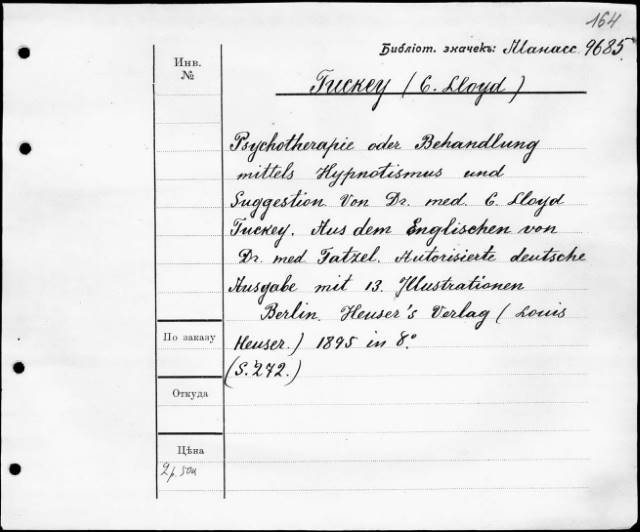 164
Библіот. значекъ: Манасс. 9685.
Инв.
№
Tuckey (C. Lloyd)
Psychotherapie oder Behandlung
mittels Hypnotismus und
Suggestion. Von Dr. med. C. Lloyd
Tuckey. Aus dem Englischen von
Dr. med Tatzel. Autorisierte deutsche
Ausgabe mit 13. Illustrationen
Berlin. Heuser's Verlag (Louis
Heuser.) 1895 in 8.°
(S. 272.)
По заказу
Откуда
Цѣна
2р. 50к